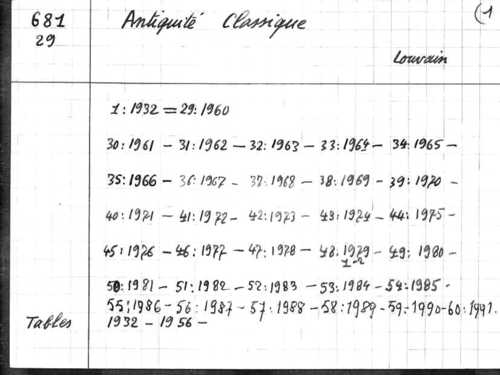 681 Antiquité Classique (1
29
Louvain
1 : 1932 = 29 : 1960
30 : 1961 – 31 : 1962 – 32 : 1963 – 33 : 1964 – 34 : 1965 –
35 : 1966 – 36 : 1967 – 37 : 1968 – 38 : 1969 – 39 : 1970 –
40 : 1971 – 41 : 1972 – 42 : 1973 – 43 : 1974 – 44 : 1975 –
45 : 1976 – 46 : 1977 – 47 : 1978 – 48 : 1979 – 49 : 1980 –
1-2
50 : 1981 – 51 : 1982 – 52 : 1983 – 53 : 1984 – 54 : 1985 -
55 : 1986 – 56 : 1987 – 57 : 1988 – 58 : 1989 – 59 : 1990 – 60 : 1991.
Tables 1932 – 1956 –